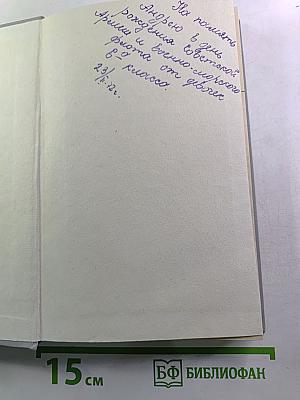 На память
Андрею в день
рождения Советской
Армии и Военно-морского
флота от девочек
класса
15 см
БФ БИБЛИОФАН